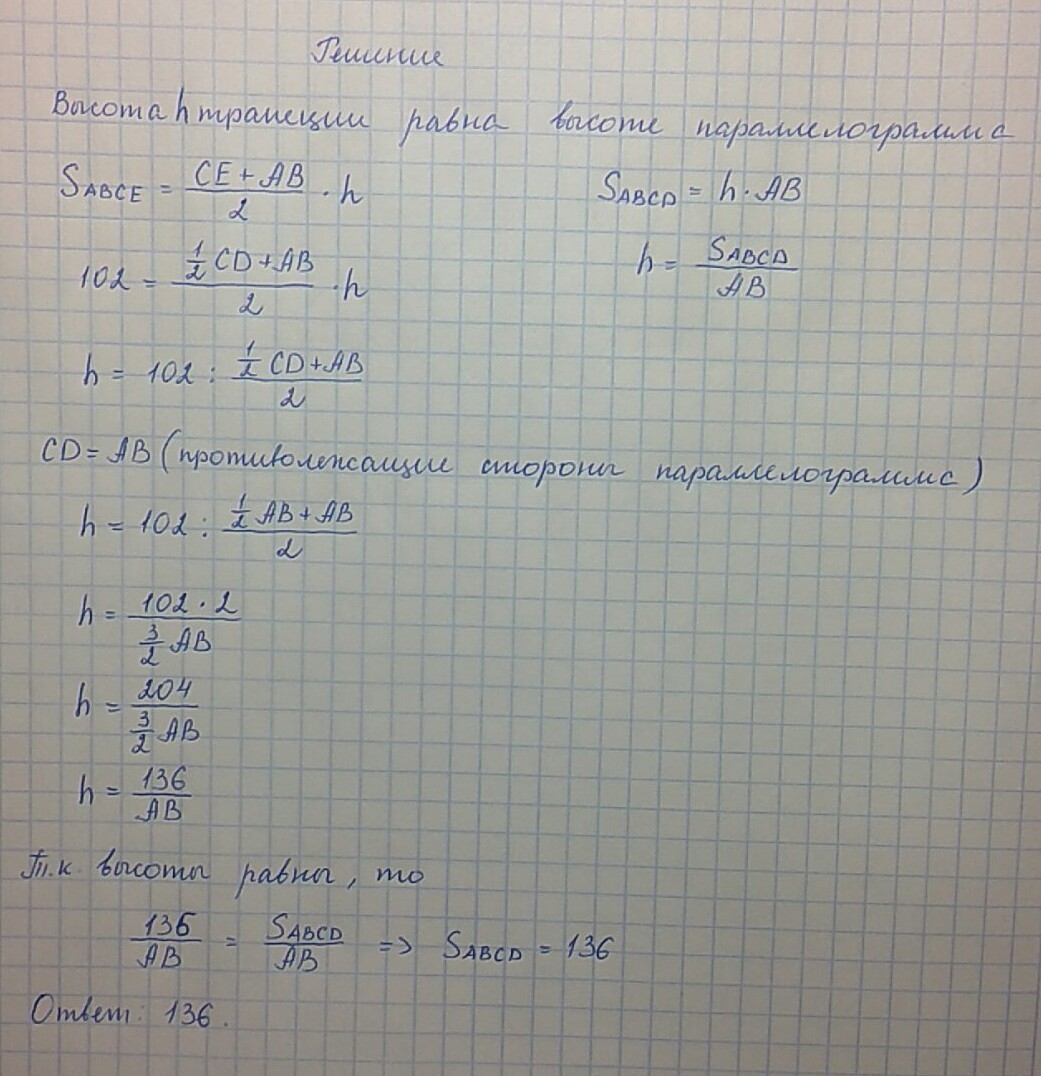 Решение
Высота h трапеции равна высоте параллелограмма
S_ABCE = (CE + AB)/2 · h
S_ABCD = h · AB
102 = (1/2 CD + AB)/2 · h
h = S_ABCD/AB
h = 102 : (1/2 CD + AB)/2
CD = AB (противолежащие стороны параллелограмма)
h = 102 : (1/2 AB + AB)/2
h = (102 · 2)/(3/2 AB)
h = 204/(3/2 AB)
h = 136/AB
Т.к. высоты равны, то
136/AB = S_ABCD/AB => S_ABCD = 136
Ответ: 136.